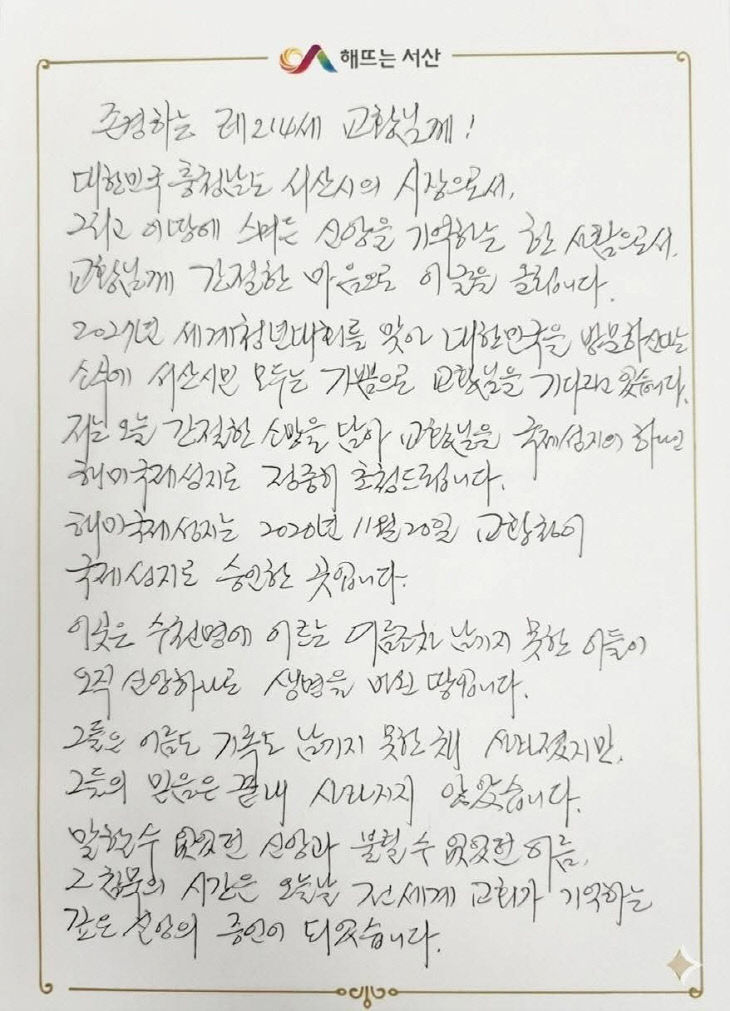 해뜨는 서산
존경하는 레오14세 교황님께!
대한민국 충청남도 서산시의 시장으로서,
그리고 이 땅에 스며든 신앙을 기억하는 한 사람으로서,
교황님께 간절한 마음으로 이 글을 올립니다.
2027년 세계청년대회를 맞아 대한민국을 방문하신다는
소식에 서산시민 모두는 기쁨으로 교황님을 기다리고 있습니다.
저는 오늘 간절한 소망을 담아 교황님을 국제성지의 하나인
해미국제성지로 정중히 초청드립니다.
해미국제성지는 2020년 11월 20일 교황청이
국제성지로 승인한 곳입니다.
이곳은 수천명에 이르는 이름조차 남기지 못한 이들이
오직 신앙하나로 생명을 바친 땅입니다.
그들은 이름도 기록도 남기지 못한 채 사라졌지만,
그들의 믿음은 끝내 사라지지 않았습니다.
말할 수 없었던 신앙과 불릴 수 없었던 이름,
그 침묵의 시간은 오늘날 전세계 교회가 기억하는
깊은 신앙의 증언이 되었습니다.